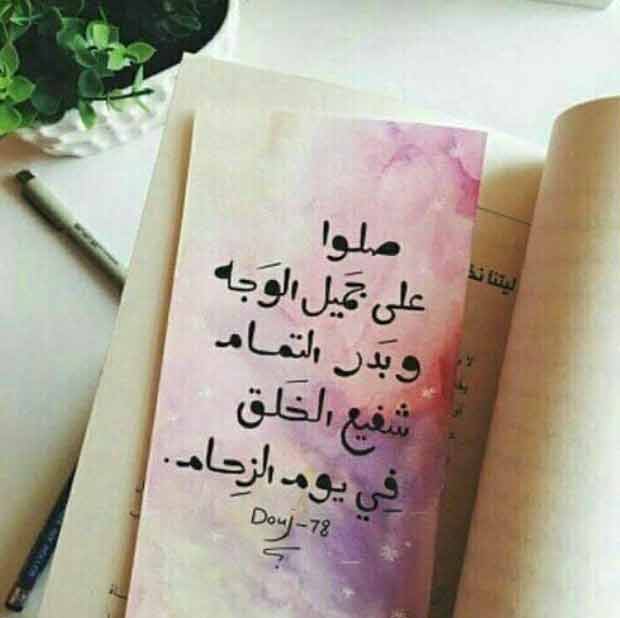 صلوا
على جَميل الوَجه
وبَدر التمام
شفيع الخَلق
فِي يوم الزِحام.
Douj-78
ليتنا نذ